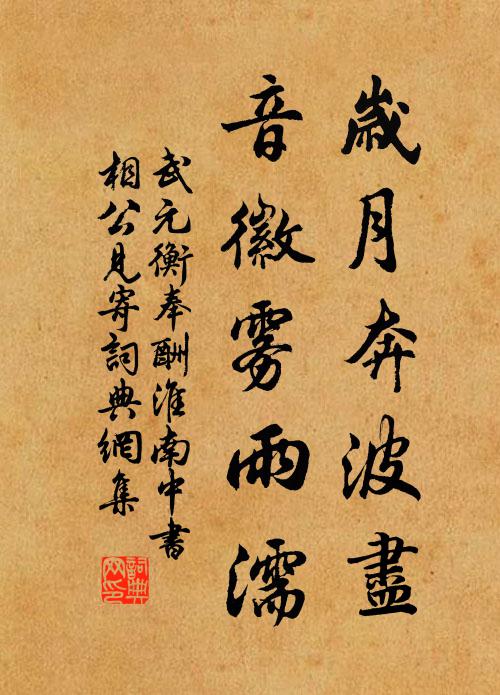 歲月奔波盡
音徽雾雨濡
武元衡奉酬淮南中書
相公見寄詞典網集
詞典
网印